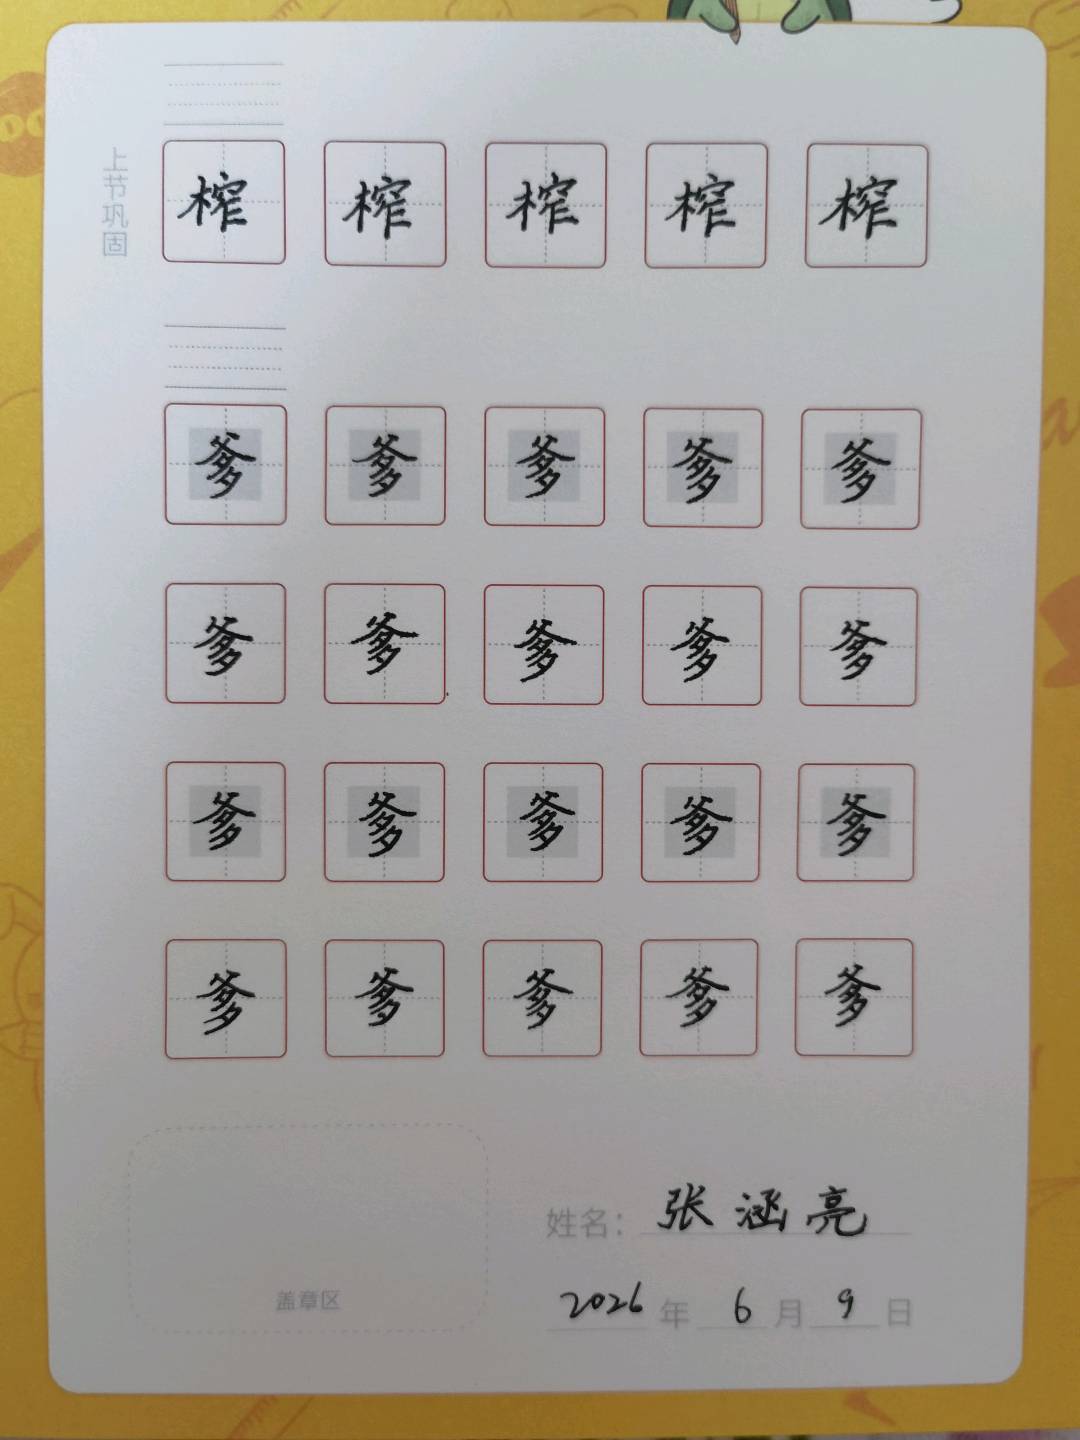 上节巩固
榨 榨 榨 榨 榨
爹 爹 爹 爹 爹
爹 爹 爹 爹 爹
爹 爹 爹 爹 爹
爹 爹 爹 爹 爹
姓名: 张涵亮
盖章区
2026年6月9日